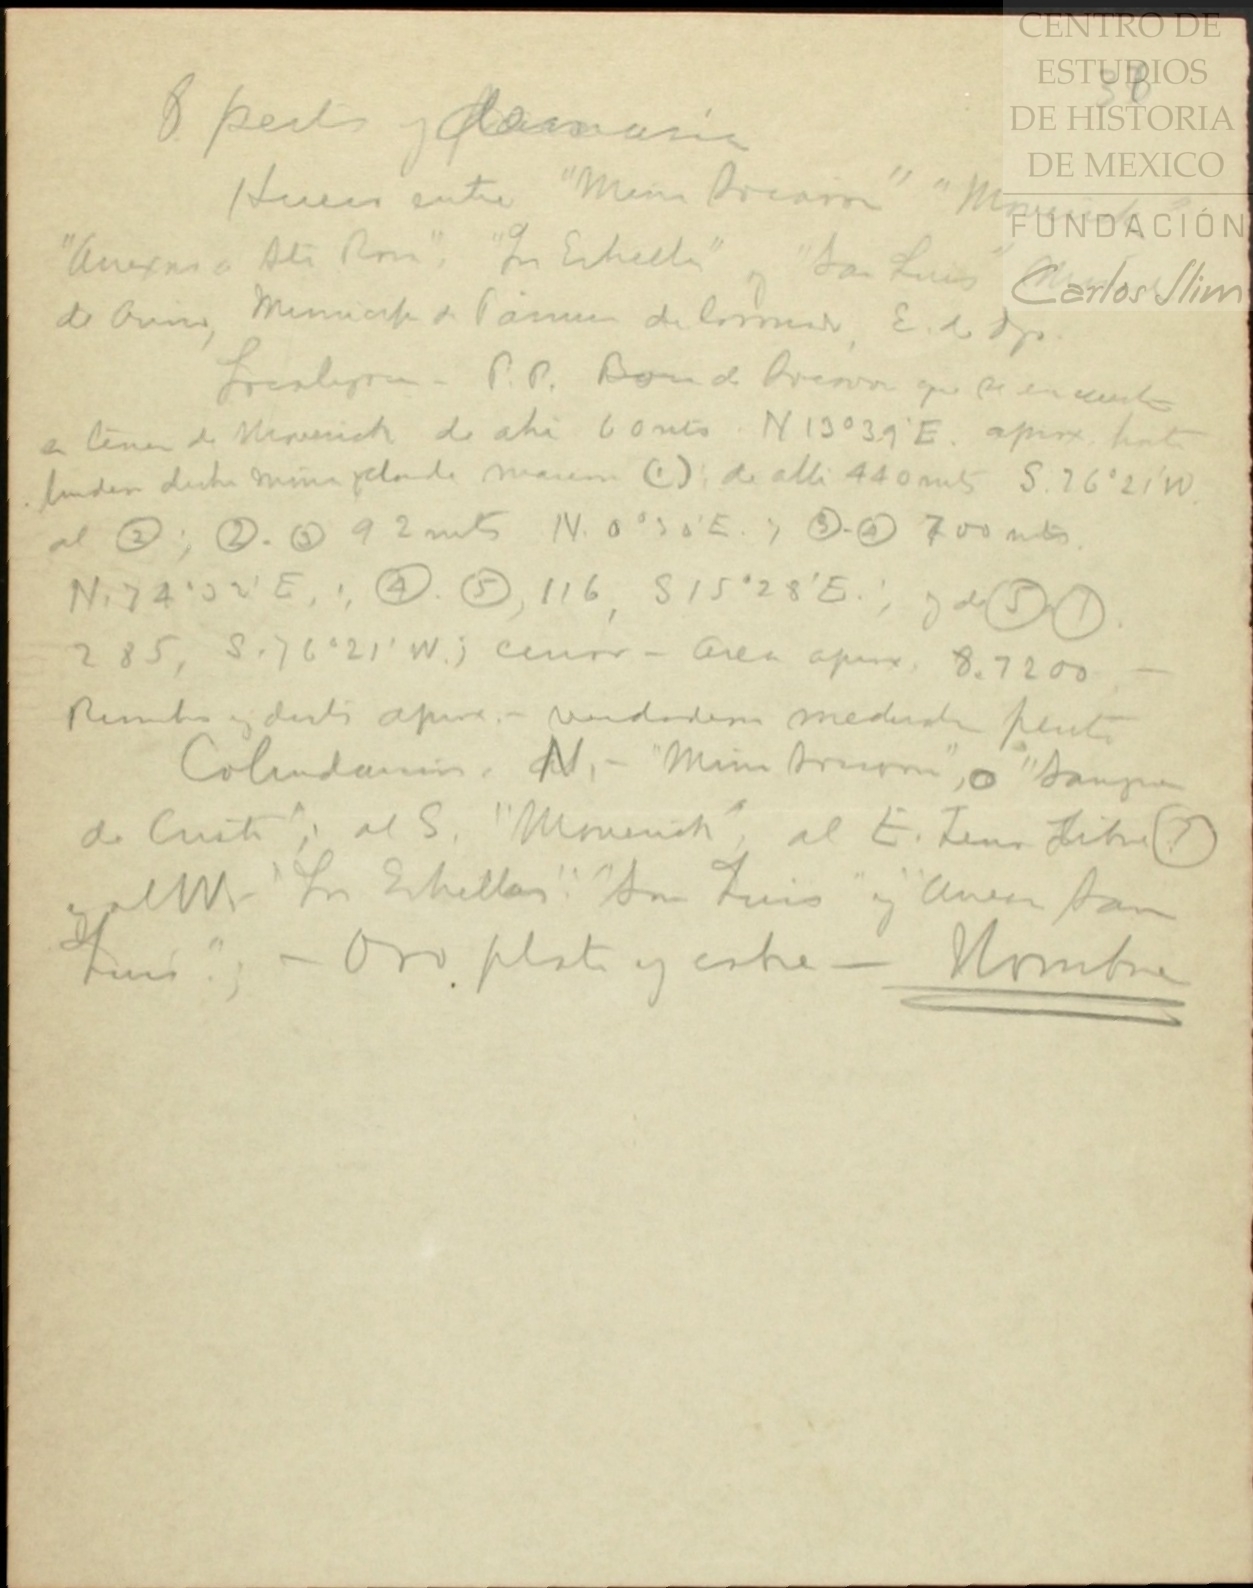 CENTRO DE
ESTUDIOS
DE HISTORIA
DE MEXICO
FUNDACIÓN
Carlos Slim
38
8 perts y demasía
Hueco entre "Mina Socavon" "Maverick"
"Anexas a Sta Rosa", "La Estrella" y "San Luis"
de Avino, Municip de Pánuco de Coronado, E. de Dgo.
Localizacion - P.P. Boca de Socavon que se encuentra
en de Maverick de ahi 60 mts. N 13°39'E. aprox. hasta
lindero dicha mina donde (1); de alli 440 mts S. 76°21'W.
al ②; ②-③ 92 mts N. 0°30'E.; ③-④ 700 mts.
N. 74°32'E.; ④-⑤, 116, S 15°28'E.; y de ⑤ ①.
285, S. 76°21'W.; - Area aprox. 8.7200 -
Rumbos y dists aprox. - verdaderas medirá perito
Colindancias. N. - "Mina Socavon", o "Sangre
de Cristo"; al S. "Maverick", al E. Terr. Libre (?)
y al W. - "La Estrella". "San Luis" y "Anexa San
Luis"; - Oro, plata y cobre - Nombre